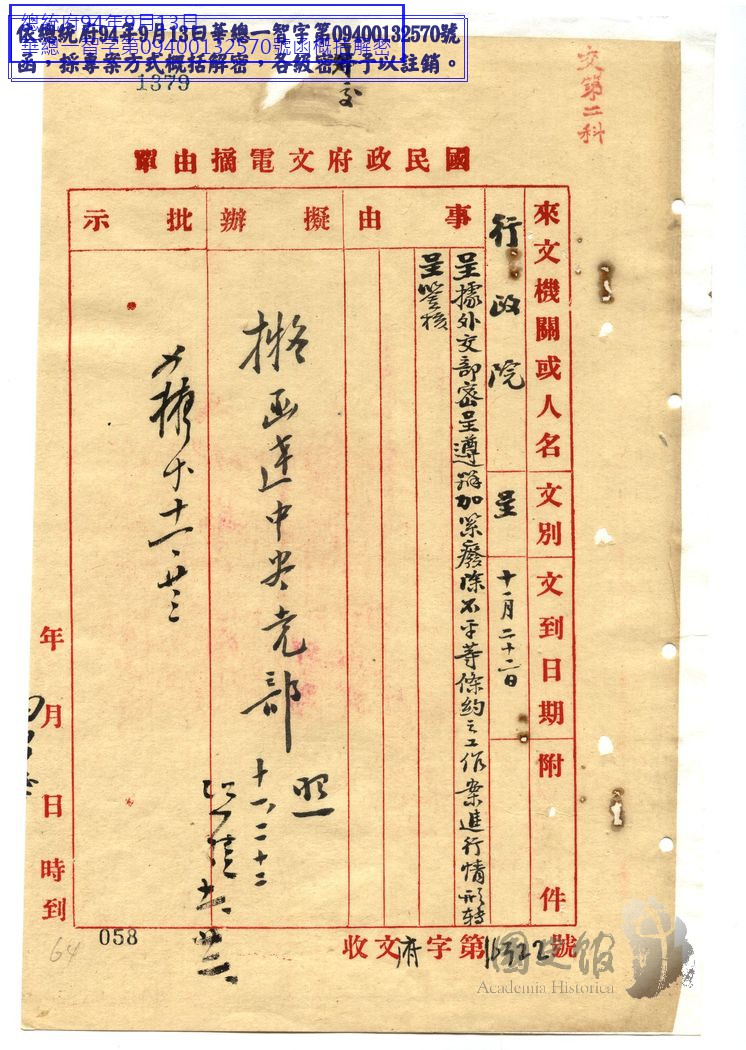 總統府94年9月13日
華總一智字第09400132570號函概括解密
依總統府94年9月13日華總一智字第09400132570號
函，採專案方式概括解密，各級密等予以註銷。
1379
交第二科
國民政府文電摘由單
來文機關或人名
行政院
文別
呈
文到日期
十一月二十二日
附件
事由
呈據外交部密呈遵辦加緊廢除不平等條約之工作案進行情形轉
呈鑒核
擬辦
擬函達中央党部
十一、二十二
批示
十一、廿三
年月日時到
收文府字第16522號
058
64
國史館
Academia Historica